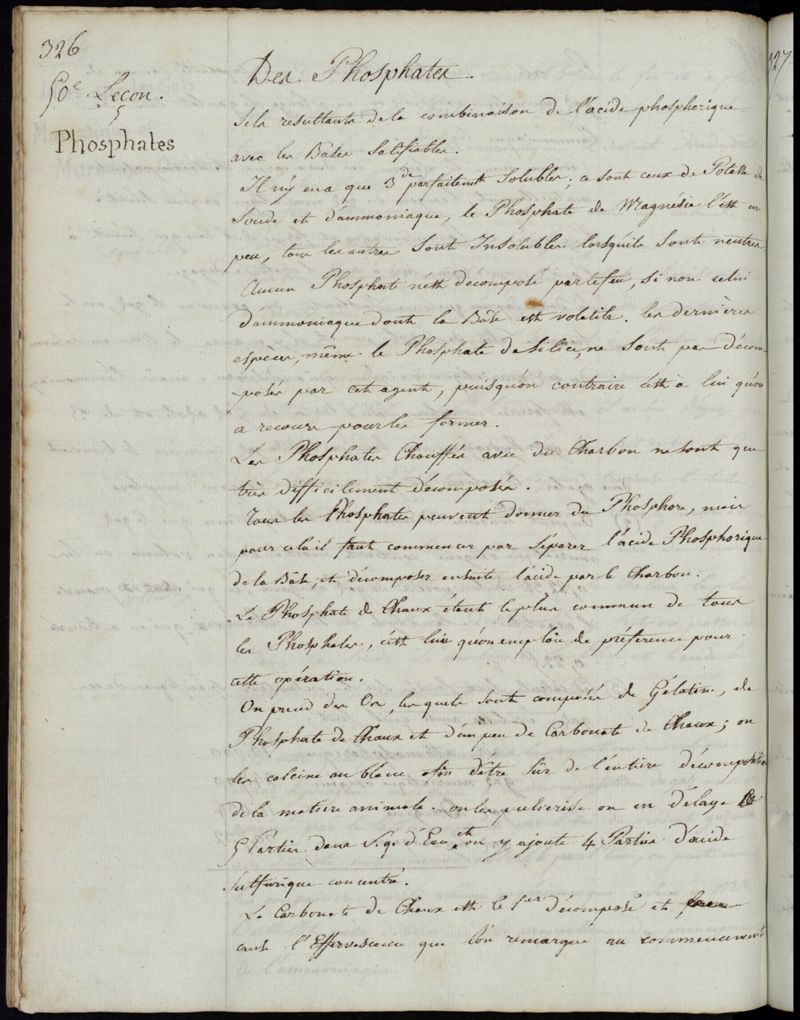 326
50e Leçon.
Phosphates
Des Phosphates.
Sels resultants de la combinaison de l'acide phosphorique
avec les Bases salifiables.
Il n'y en a que 3 de parfaitemt Solubles; ce sont ceux de Potasse de
Soude et d'ammoniaque, le Phosphate de Magnésie l'est un
peu, tous les autres Sont Insolubles lorsqu'ils Sont neutres
Aucun Phosphate n'est décomposé par le feu, si non celui
d'ammoniaque dont la Base est volatile. les dernières
espèces, même le Phosphate de Silice, ne Sont pas décom-
-posés par cet agent, puisqu'on contraire c'est a lui qu'on
a recours pour les former.
Les Phosphates Chauffés avec du Charbon ne sont que
très difficilement décomposés.
Tous les Phosphates peuvent donner du Phosphore, mais
pour cela il faut commencer par Séparer l'acide Phosphorique
de la Base, et décomposer ensuite l'acide par le Charbon.
Le Phosphate de Chaux étant le plus commun de tous
les Phosphates, c'est lui qu'on emploie de préférence pour
cette opération.
On prend des Os, lesquels sont composés de Gélatine, de
Phosphate de Chaux et d'un peu de Carbonate de Chaux; on
les calcine au blanc afin d'être Sûr de l'entière décomposition
de la matière animale. on les pulverise on en délaye
5 Parties dans S.q. d'Eau et on y ajoute 4 Parties d'acide
Sulfurique concentré.
Le Carbonate de Chaux est le 1er décomposé et
cause l'Effervescence que l'on remarque au commencement
327